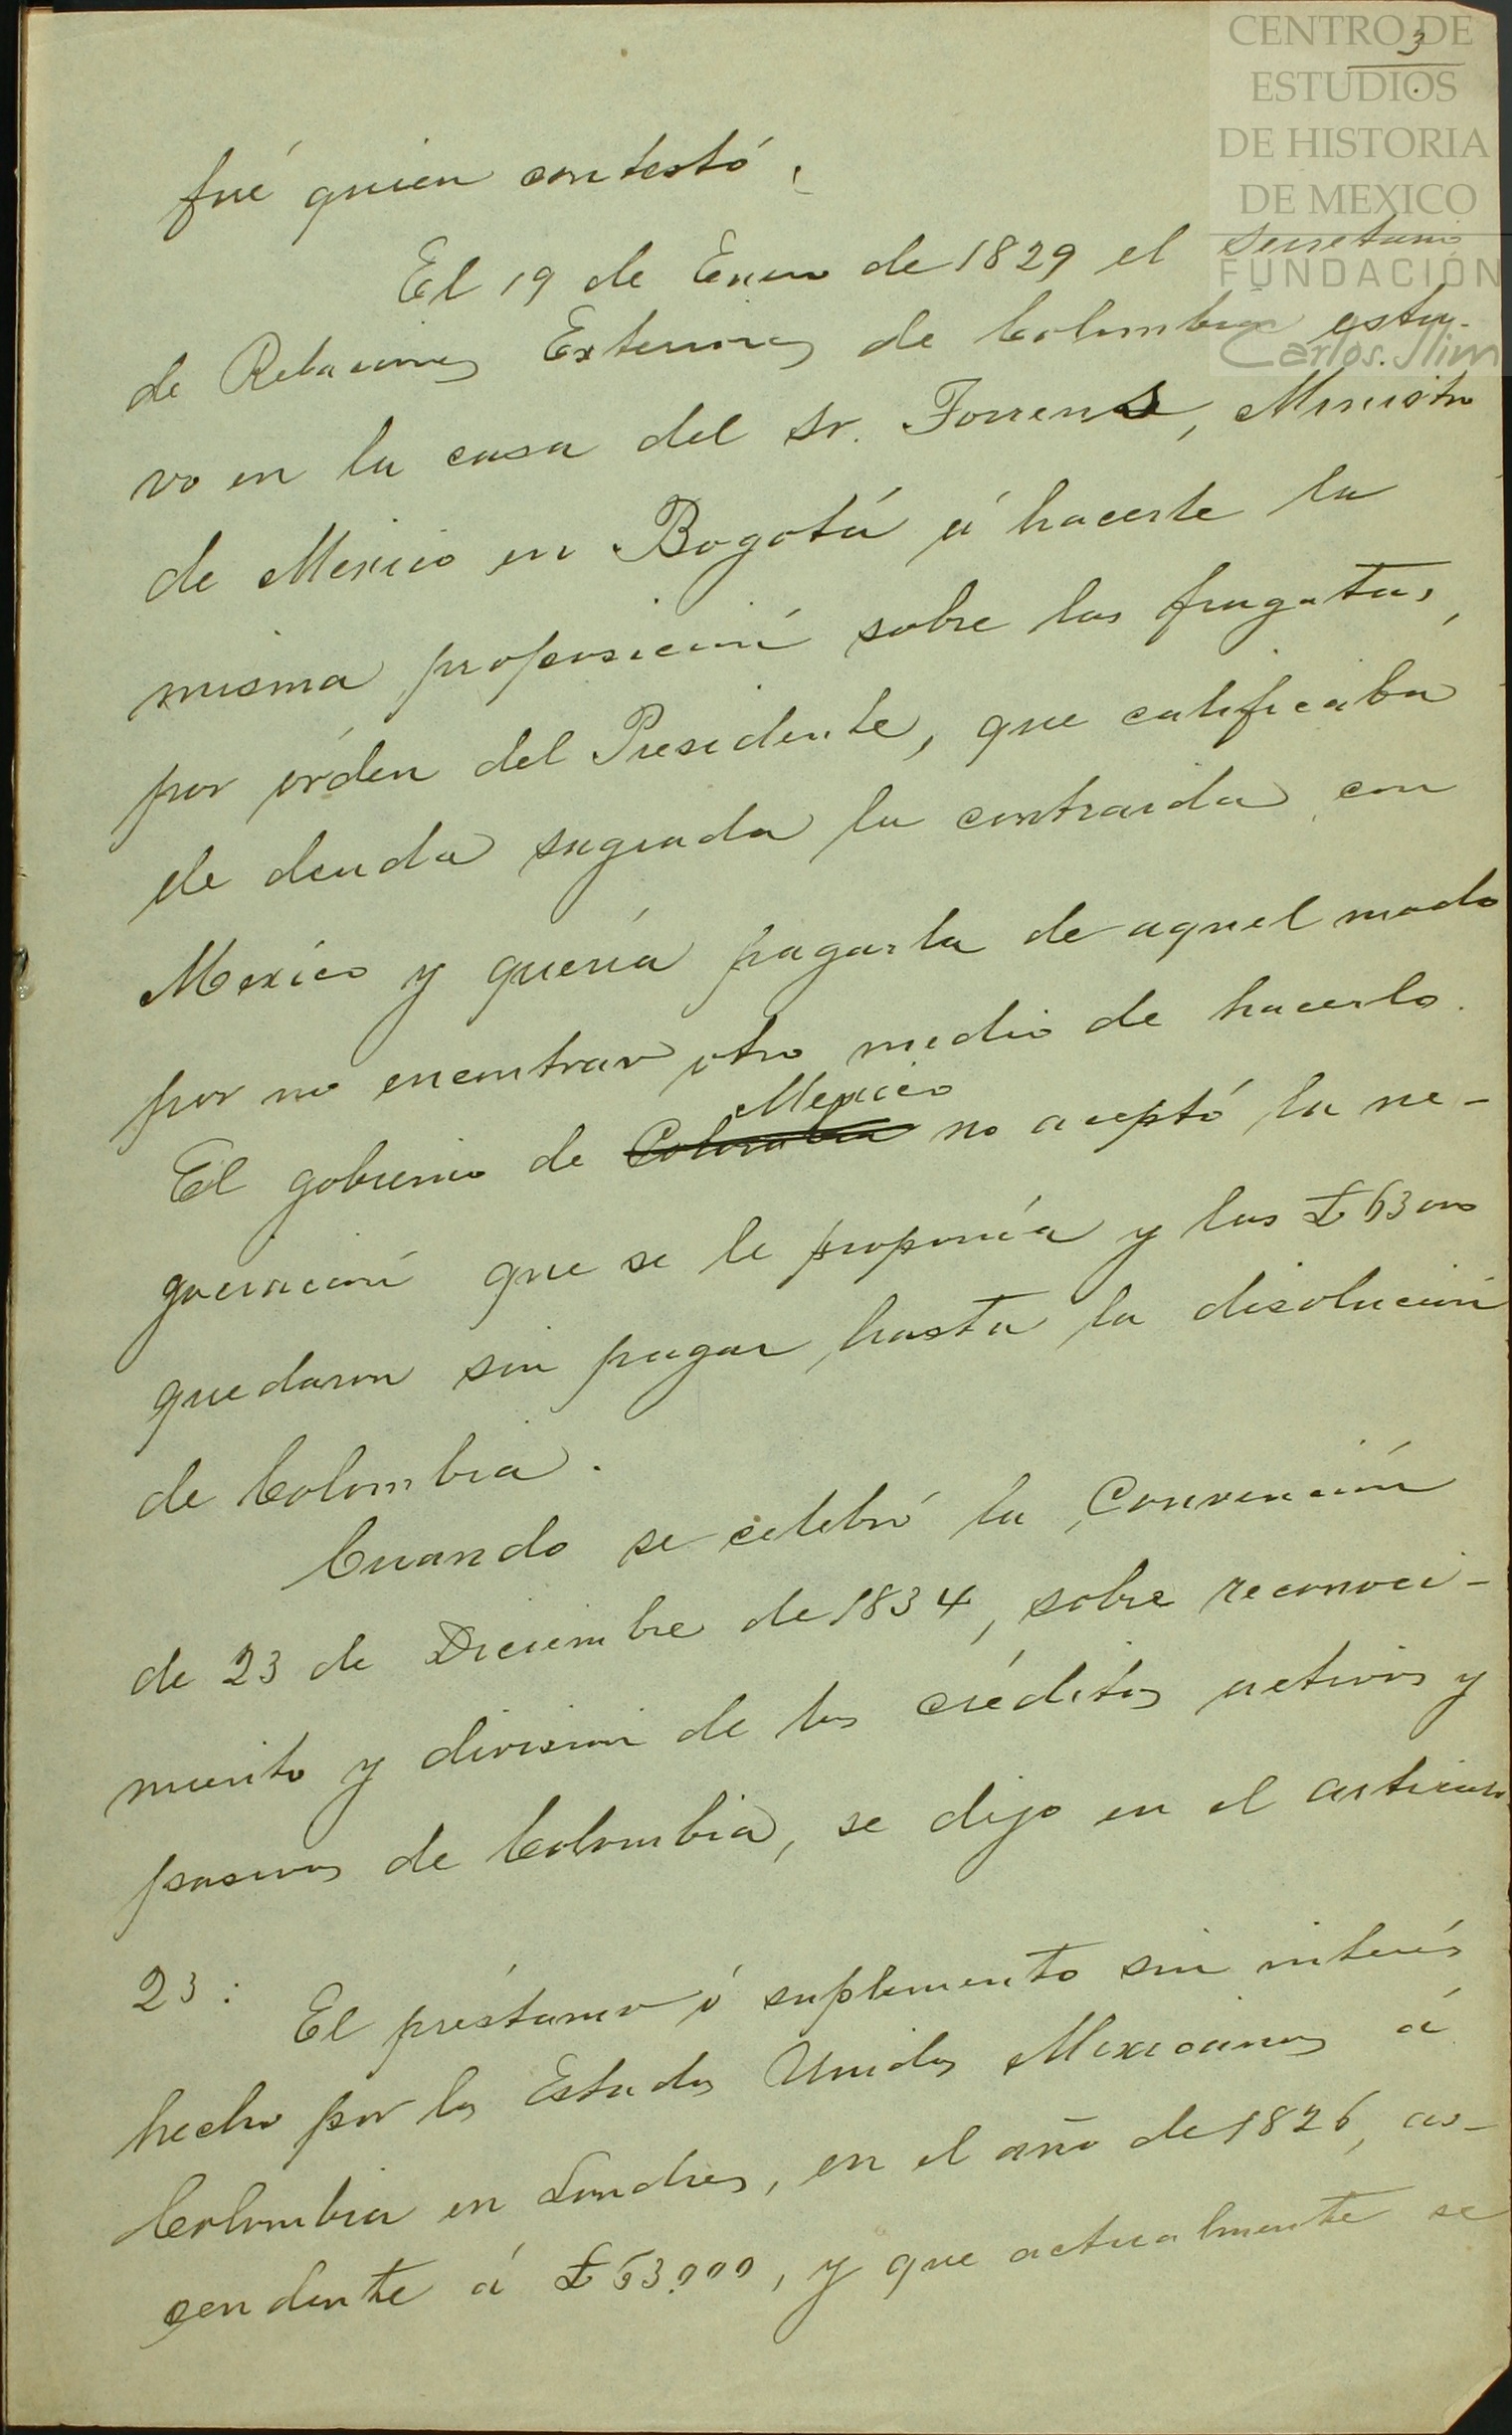 3
CENTRO DE
ESTUDIOS
DE HISTORIA
DE MEXICO
FUNDACIÓN
Carlos Slim
fué quien contestó.
El 19 de Enero de 1829 el Secretario
de Relaciones Exteriores de Colombia estu-
vo en la casa del Sr. Torrens, Ministro
de Mexico en Bogotá á hacerle la
misma proposición sobre las fragatas,
por orden del Presidente, que calificaba
de deuda sagrada la contraida con
Mexico y quería pagarla de aquel modo
por no encontrar otro medio de hacerlo.
Mexico
El gobierno de Colombia no aceptó la ne-
gociación que se le proponía y las £ 63000
quedaron sin pagar hasta la disolución
de Colombia.
Cuando se celebró la Convención
de 23 de Diciembre de 1834, sobre reconoci-
miento y division de los créditos activos y
pasivos de Colombia, se dijo en el articulo
23: El préstamo ó suplemento sin interés
hecho por los Estados Unidos Mexicanos á
Colombia en Londres, en el año de 1826, as-
cendente á £ 63.000, y que actualmente se